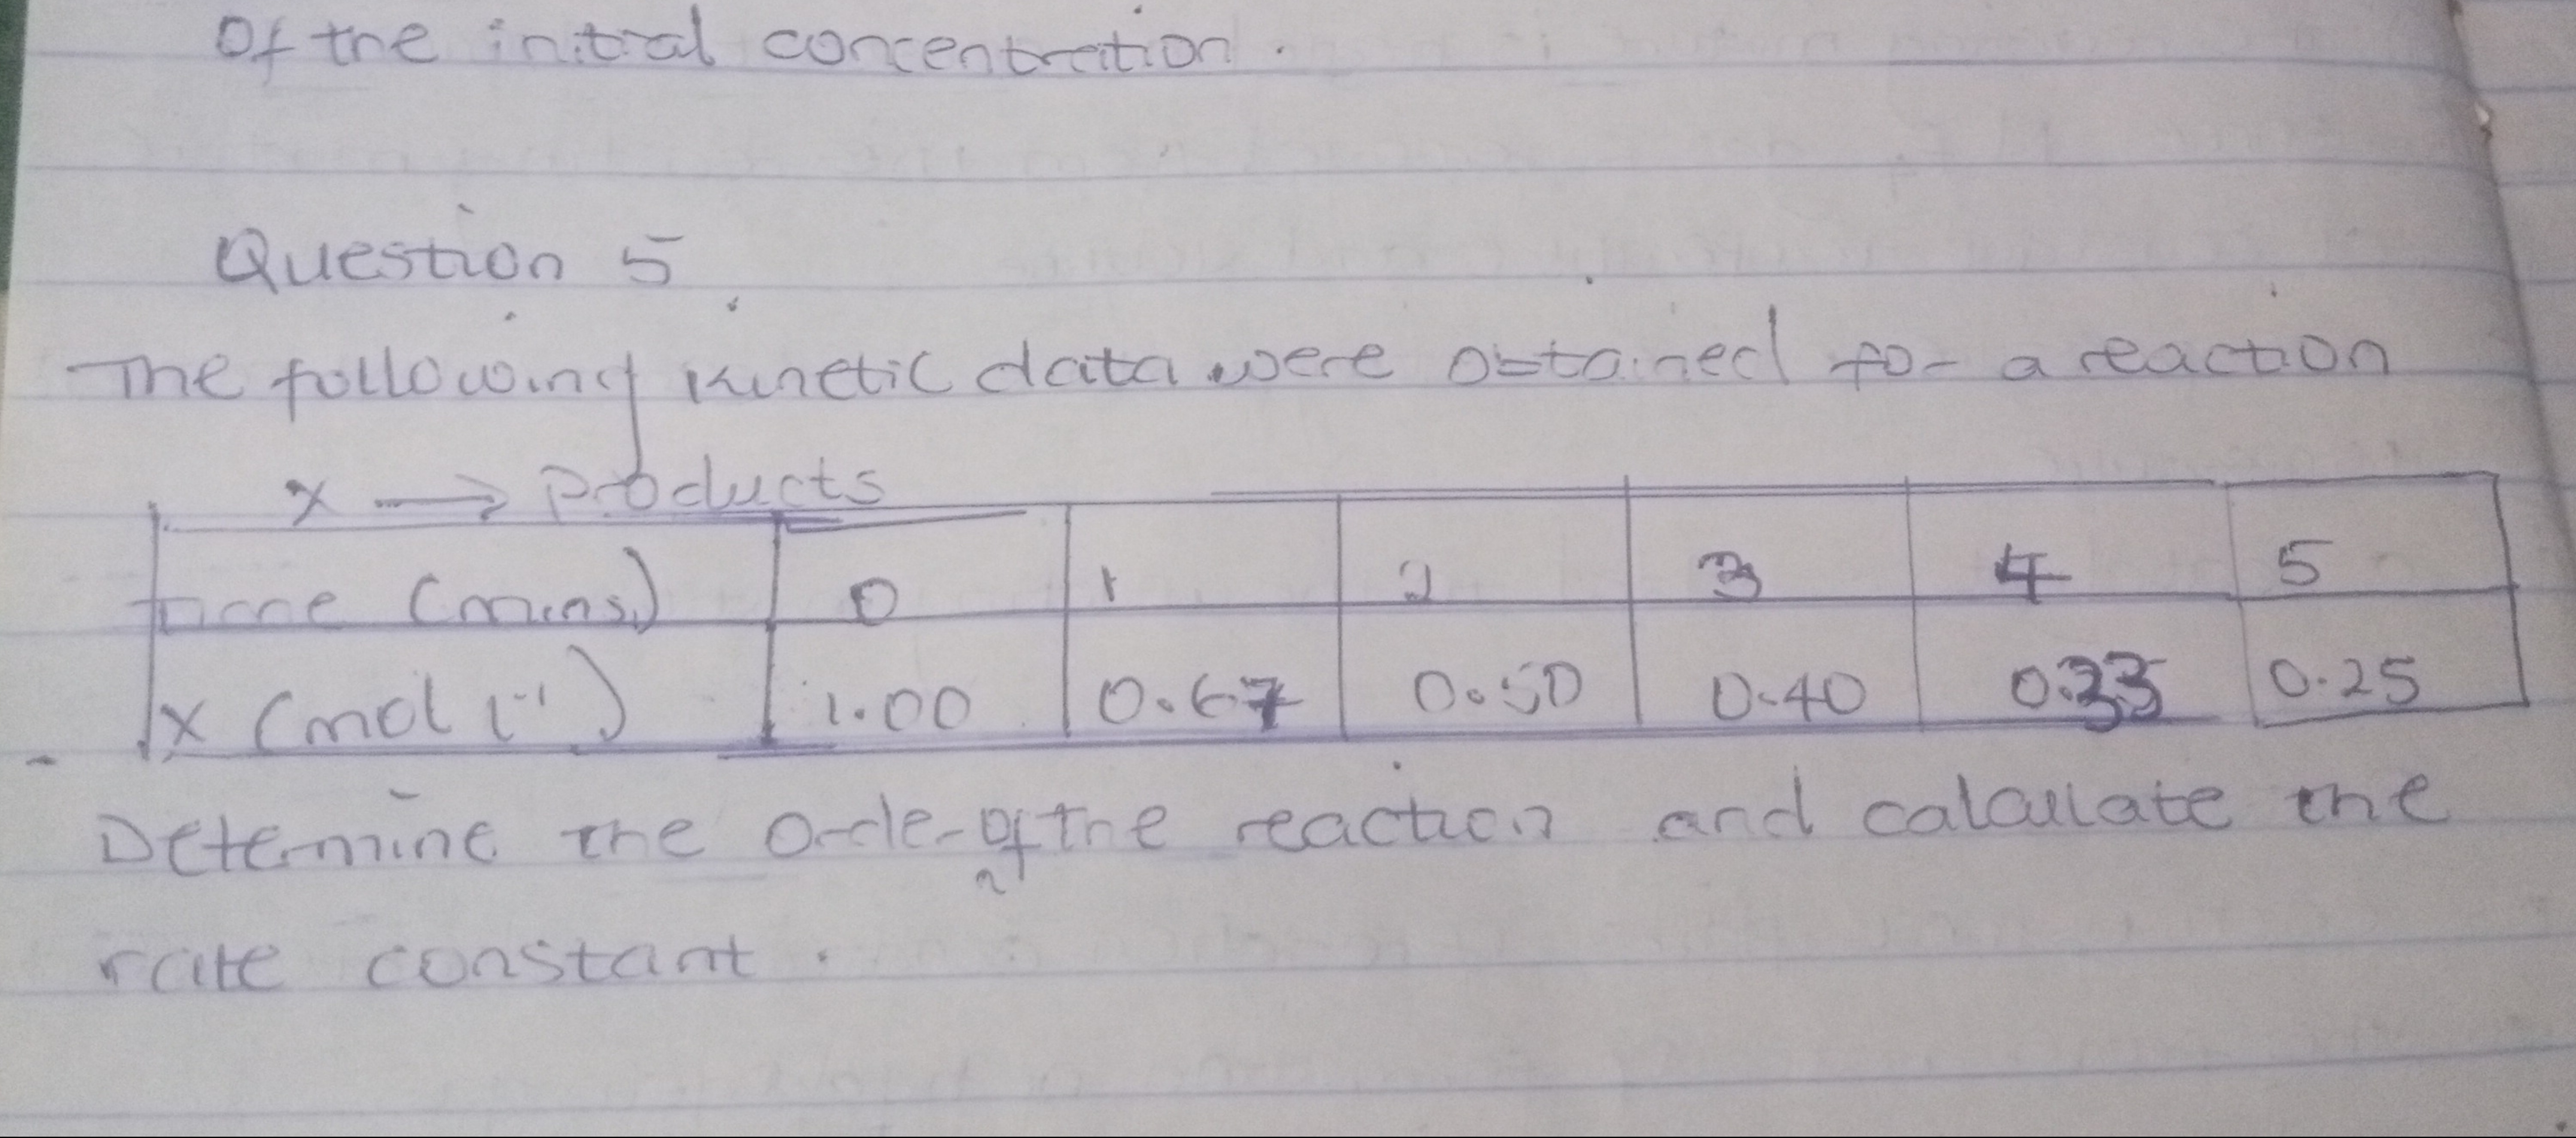 Of the initial concentration.
Question 5
The following kinetic data were obtained for a reaction
x → products
time (mins) 0 1 2 3 4 5
x (mol l⁻¹) 1.00 0.67 0.50 0.40 0.33 0.25
Determine the order of the reaction and calculate the
rate constant.